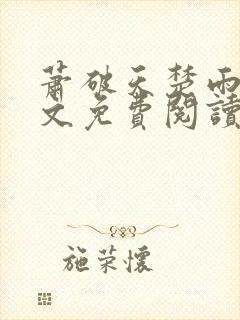 蕭破天楚雨
文免費閱讀
施荣懷